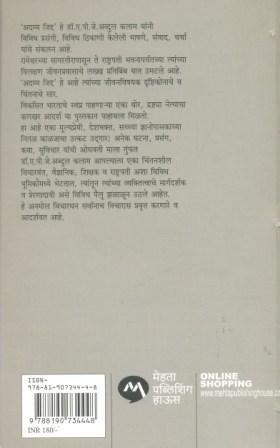 'अदम्य जिद्द' हे डॉ.ए.पी.जे.अब्दुल कलाम यांनी
विविध प्रसंगी, विविध ठिकाणी केलेली भाषणे, संवाद, चर्चा
यांचे संकलन आहे.
रामेश्वरच्या सागरतीरापासून ते राष्ट्रपती भवनापर्यंतच्या त्यांच्या
विलक्षण जीवनप्रवासाचे लख्ख प्रतिबिंब यात उमटले आहे.
'अदम्य जिद्द' हे आहे त्यांच्या जीवनविषयक दृष्टिकोनाचे व
चिंतनाचे सार.
विकसित भारताचे स्वप्न पाहणाऱ्या एका थोर, द्रष्ट्या नेत्याचा
कणखर आदर्श या पुस्तकात पाहायला मिळतो.
हा आहे एका मूल्यप्रेमी, देशभक्त, सच्च्या ज्ञानोपासकाच्या
निर्मळ काळजाचा उत्कट उद्गार! अनेक घटना, प्रसंग,
कथा, सुविचार यांची ओघवती माला गुंफत
डॉ.ए.पी.जे.अब्दुल कलाम आपल्याला एक चिंतनशील
विचारवंत, वैज्ञानिक, शिक्षक व राष्ट्रपती अशा विविध
भूमिकांमध्ये भेटतात, त्यांतून त्यांच्या व्यक्तित्वाचे मार्गदर्शक
व प्रेरणादायी असे विविध पैलू झळाळून उठले आहेत.
हे अनमोल विचारधन सर्वांनाच विचारास प्रवृत्त करणारे व
आदर्शवत आहे.
ISBN-
978-81-907344-4-8
9 788190 734448
INR 180/-
मेहता
पब्लिशिंग
हाऊस
ONLINE
SHOPPING
www.mehtapublishinghouse.com